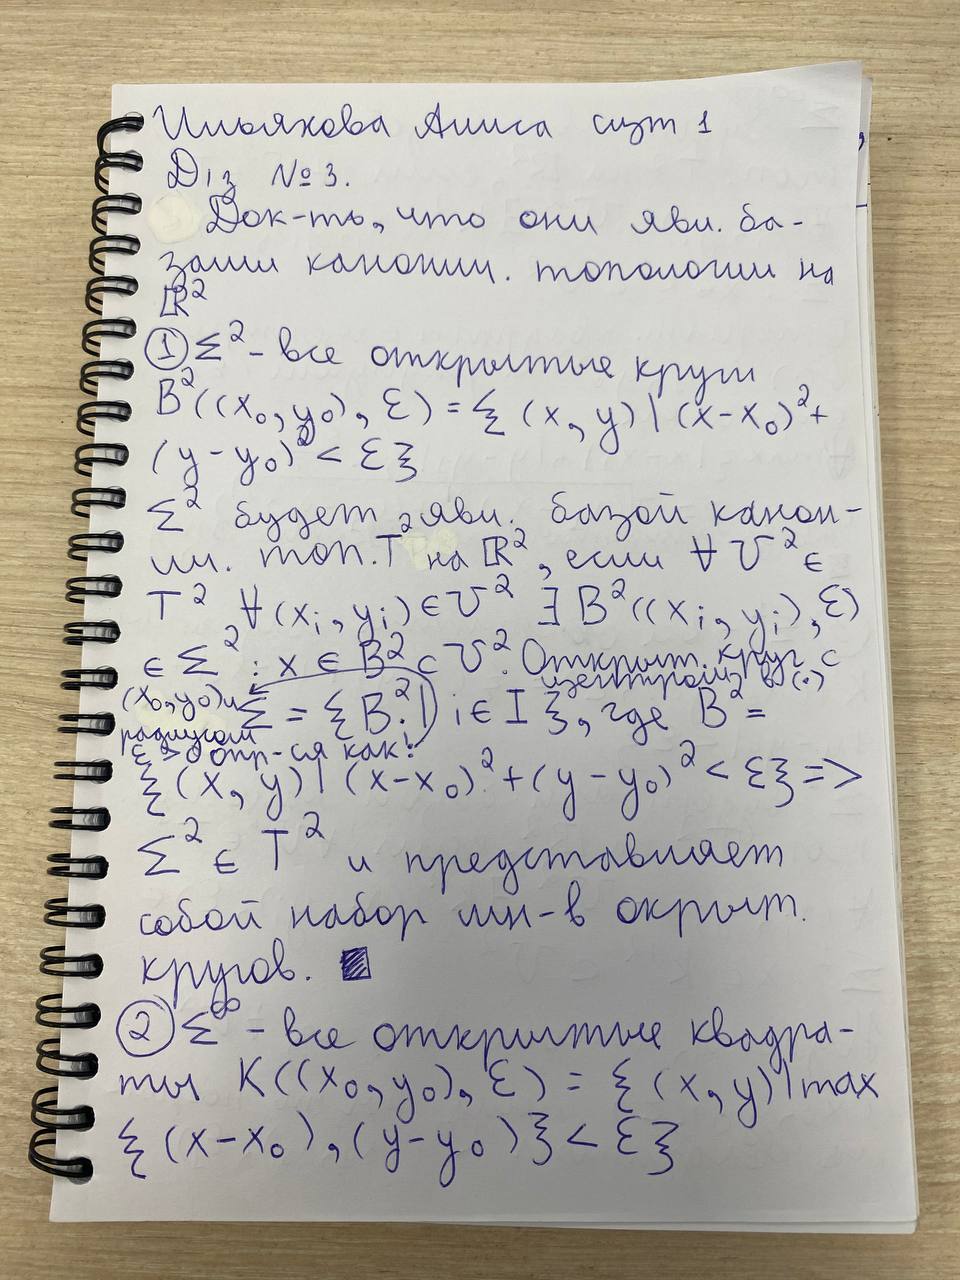 Ильякова Алиса сизт 1
Д/з №3.
Док-ть, что они явл. ба-
зами канонич. топологии на
ℝ²
① Σ² - все открытые круги
B²((x₀, y₀), ε) = { (x, y) | (x-x₀)² +
(y-y₀)² < ε}
Σ² будет явл. базой канон-
ич. топ. T² на ℝ², если ∀ U² ∈
T² ∀(xᵢ, yᵢ) ∈ U² ∃ B²((xᵢ, yᵢ), ε)
∈ Σ² : x ∈ B² ⊂ U². Открыт. круг с
центром в (·)
(x₀, y₀) и
радиусом
ε > 0 опр-ся как:
Σ = {B²ᵢ | i ∈ I }, где B² =
{ (x, y) | (x-x₀)² + (y-y₀)² < ε} =>
Σ² ∈ T² и представляет
собой набор мн-в окрыт.
кругов.
② Σ^∞ - все открытые квадра-
ты K((x₀, y₀), ε) = { (x, y) | max
{ (x-x₀), (y-y₀)} < ε}